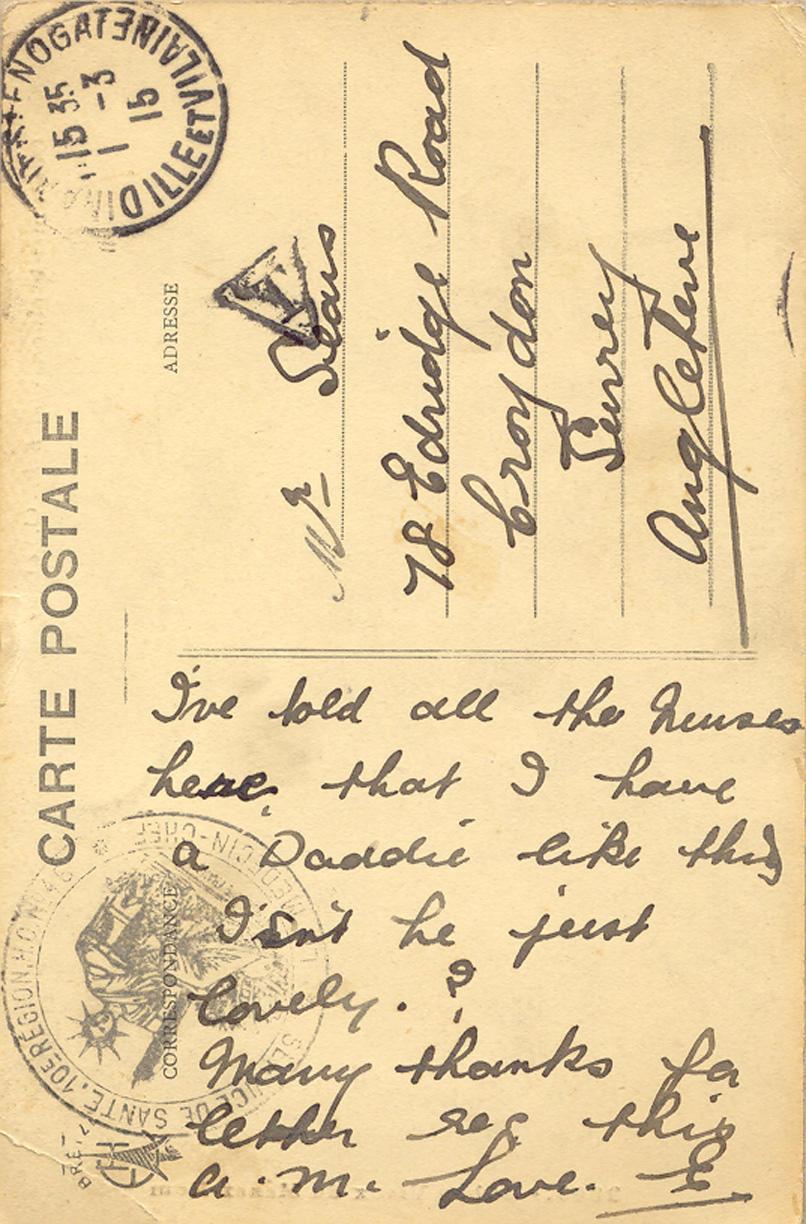 CARTE POSTALE
ADRESSE
CORRESPONDANCE
ST ENOGAT
ILLE ET VILAINE
15 35
1 -3
15
T
Mr Sears
78 Edridge Road
Croydon
Surrey
Angleterre
I've told all the Nurses
here, that I have
a Daddie like this
Isn't he just
lovely. ?
Many thanks for
letter rec this
a.m. Love. E.
MEDECIN-CHEF
SERVICE DE SANTE, 10E REGION